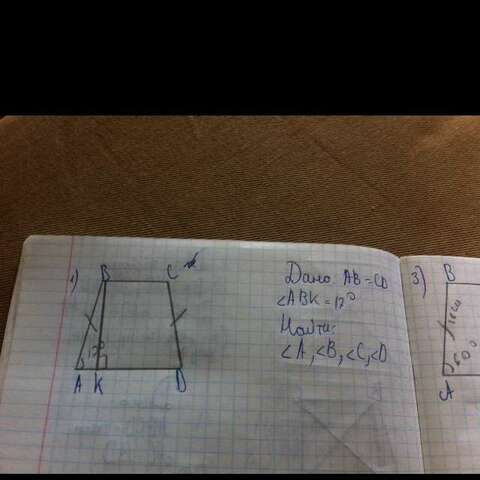 1)
B C
17°
A K D
Дано AB = CD
<ABK = 17°
Найти:
<A, <B, <C, <D
3)
B
60°
A